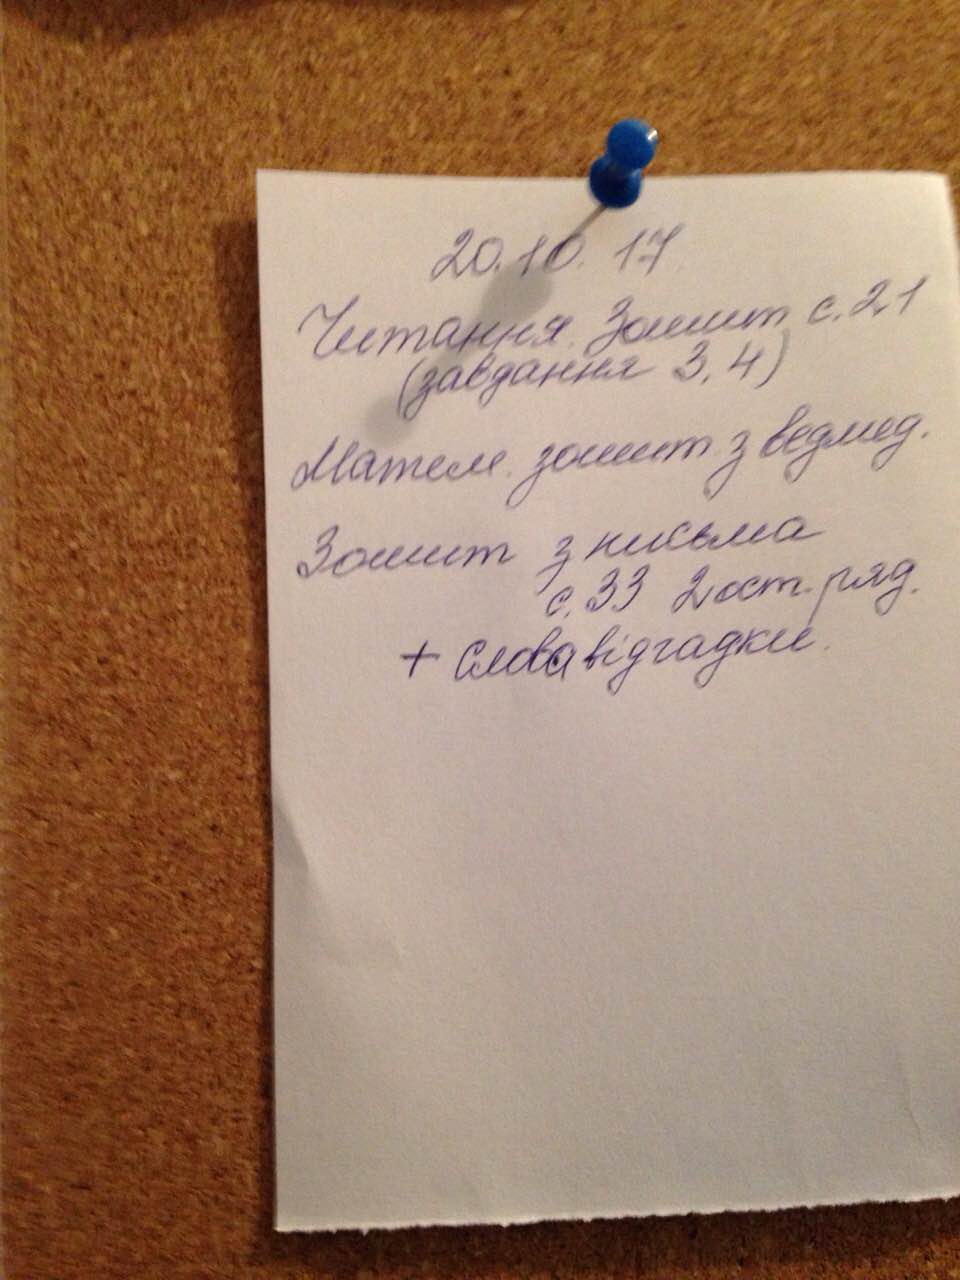 20.10.17
Читання. Зошит с. 21
(завдання 3, 4)
Матем. зошит з ведмед.
Зошит з письма
с. 33 2 ост. ряд.
+ слова відгадки.